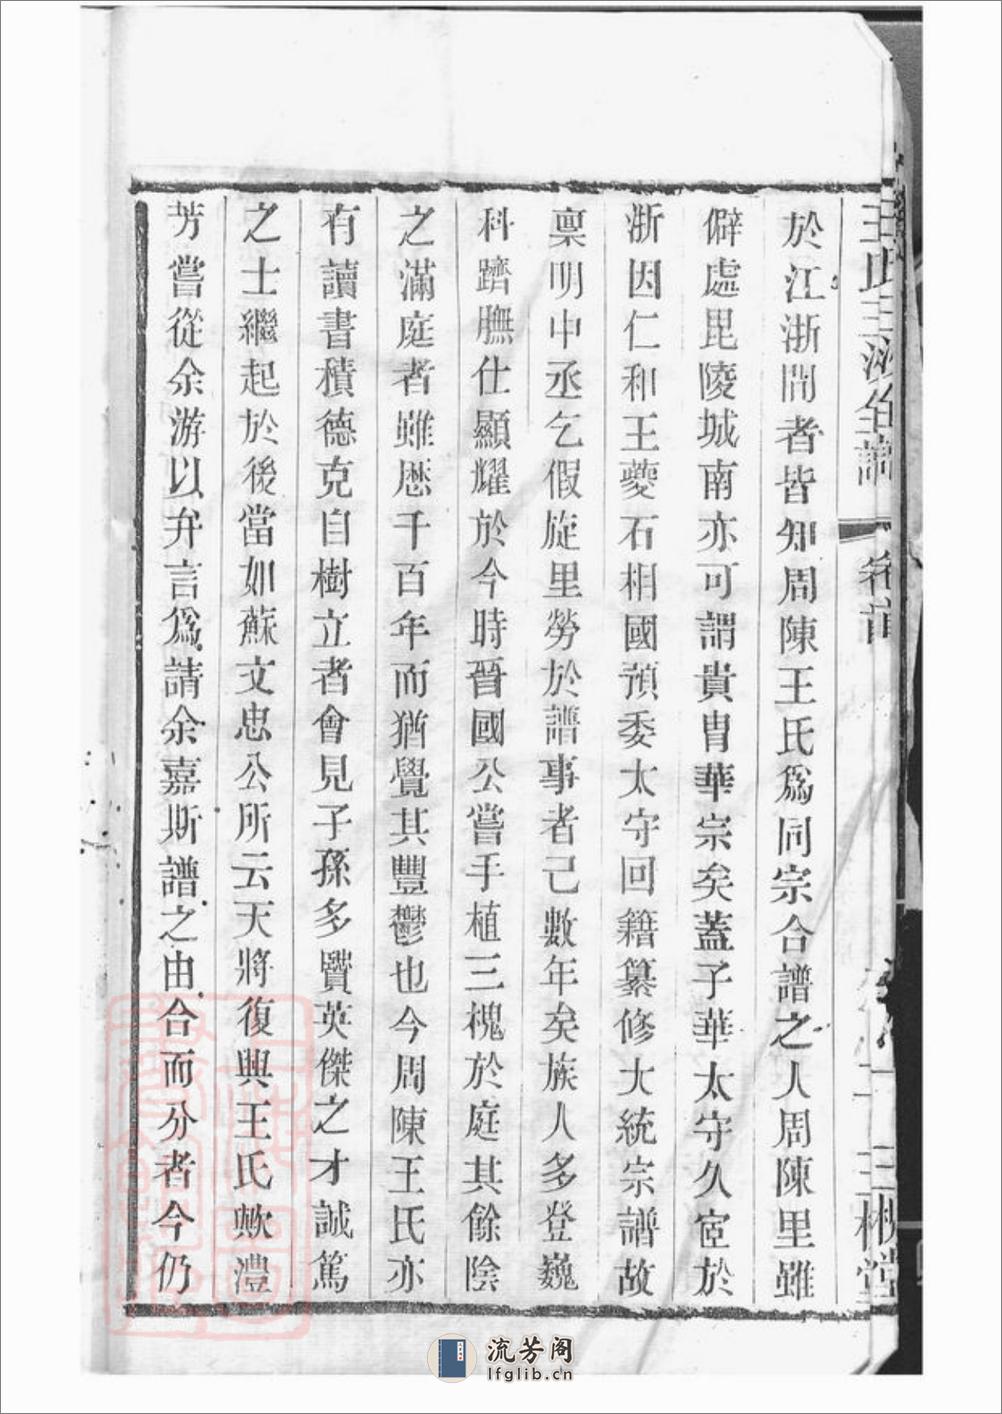 王氏三沙全譜
卷首
三槐堂
於江浙間者皆知周陳王氏爲同宗合譜之人周陳里雖
僻處毘陵城南亦可謂貴胄華宗矣蓋子華太守久宦於
浙因仁和王夔石相國預委太守回籍纂修大統宗譜故
稟明中丞乞假旋里勞於譜事者已數年矣族人多登巍
科躋膴仕顯耀於今時晉國公嘗手植三槐於庭其餘陰
之滿庭者雖歷千百年而猶覺其豐鬱也今周陳王氏亦
有讀書積德克自樹立者會見子孫多賢英傑之才誠篤
之士繼起於後當如蘇文忠公所云天將復興王氏歟澧
芳嘗從余游以弁言爲請余嘉斯譜之由合而分者今仍
流芳阁
lfglib.cn